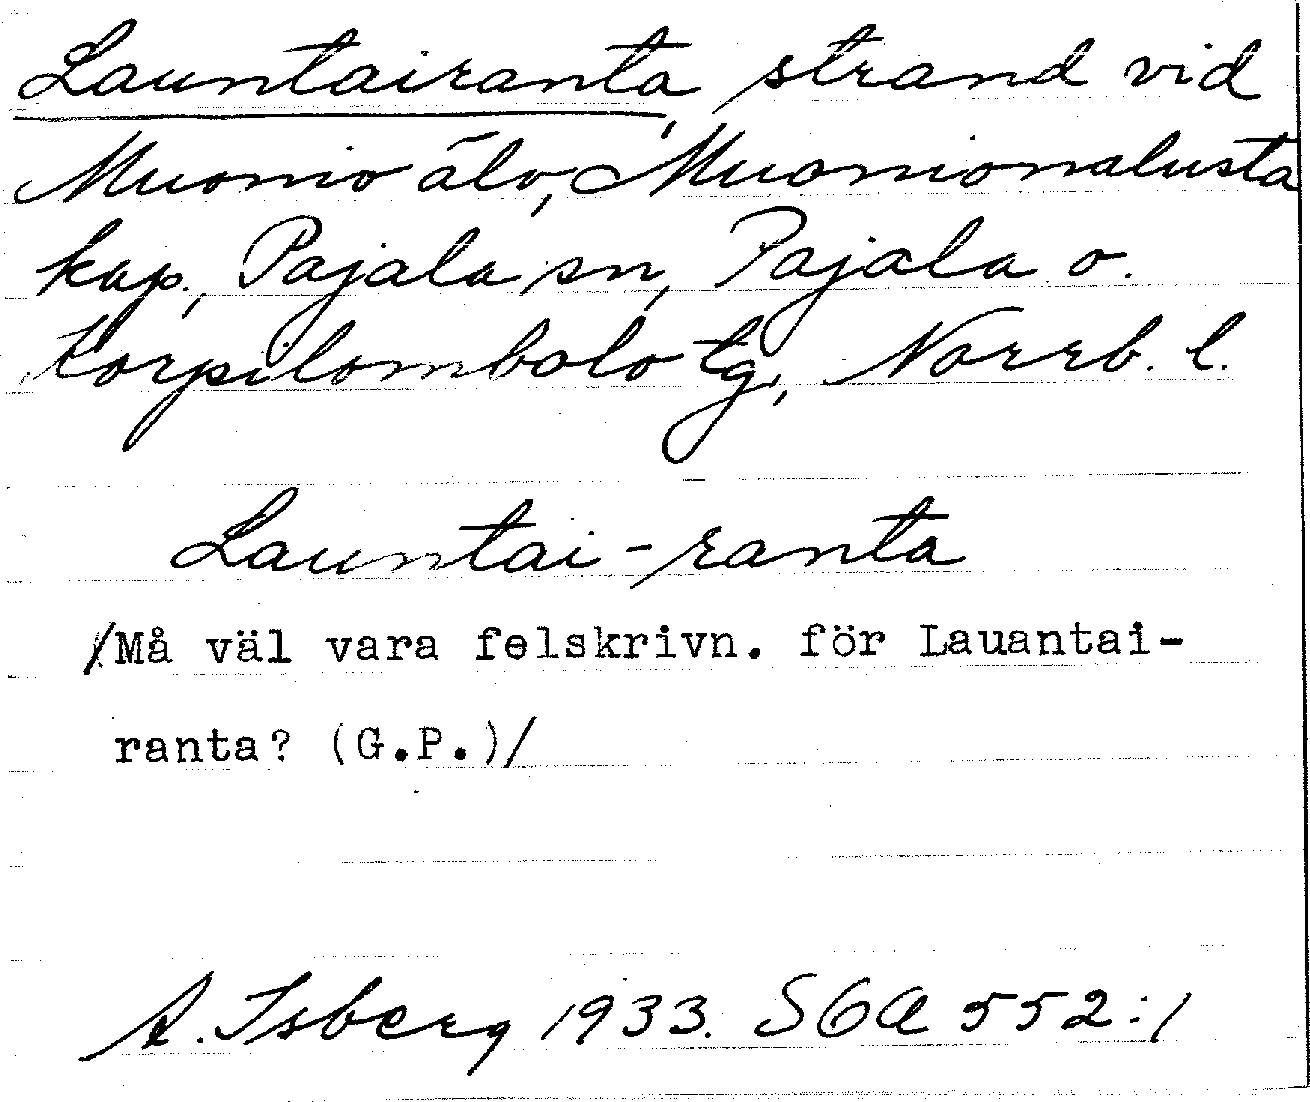 Launtairanta, strand vid
Muonio älv, Muonionalusta
kap., Pajala sn, Pajala o.
Korpilombolo tg, Norrb. l.
Launtai-ranta
/Må väl vara felskrivn. för Lauantai-
ranta? (G.P.)/
A. Isberg 1933. SGA 552:1